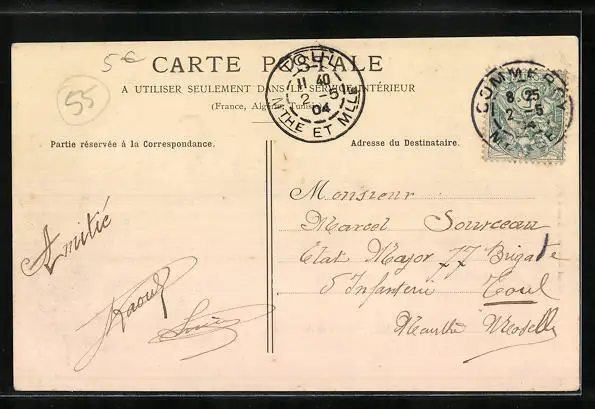 5€
CARTE POSTALE
55
A UTILISER SEULEMENT DANS LE SERVICE INTÉRIEUR
(France, Algérie, Tunisie)
TOUL
11 40
2 -5
04
MTHE ET MLLE
COMMERCY
8 25
2 -5
Partie réservée à la Correspondance.
Adresse du Destinataire.
Amitié
Raoul
Monsieur
Marcel Sourceau
Etat Major 77 Brigade
d'Infanterie Toul
Meurthe Moselle